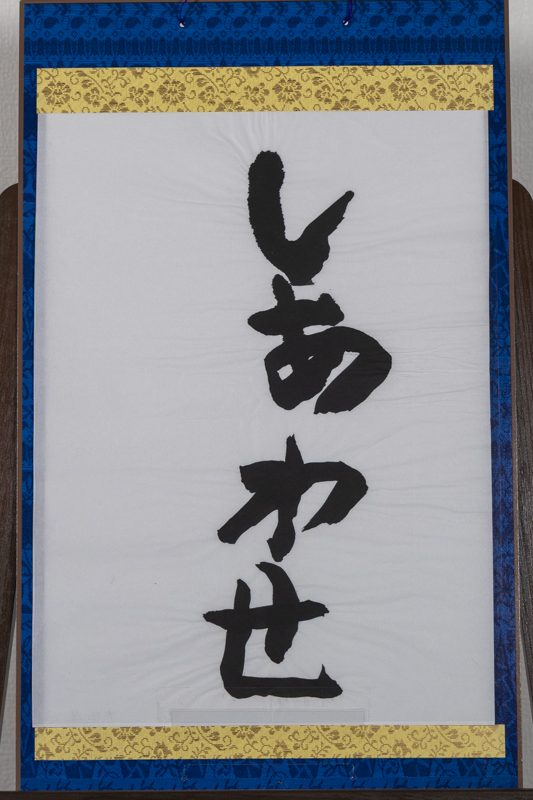 しあわせ